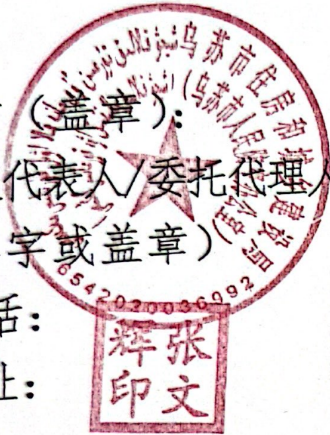 （盖章）：
代表人/委托代理人
字或盖章）
话：
址：
乌苏市住房和城乡建设局
（乌苏市人民防空办公室）
6542020036092
张文
辉印